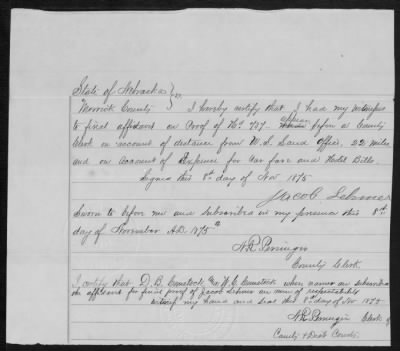 State of Nebraska } ss.
Merrick County } I hereby certify that I had my witnesses
to final affidavit on Proof of No 737 appear before a County
Clerk on account of distance from U.S. Land Office, 22 miles
and on account of Expense for Car fare and Hotel Bills.
Signed this 8th day of Nov 1875
Jacob Lehmer
Sworn to before me and subscribed in my presence this 8th
day of November A.D. 1875
County Clerk.
I certify that D. B. Comstock & W. C. Comstock whose names are subscribed
the affidavits for final proof of Jacob Lehmer are men of respectability
witness my hand and seal this 8th day of Nov 1875
Clerk of
County & Dist Courts.